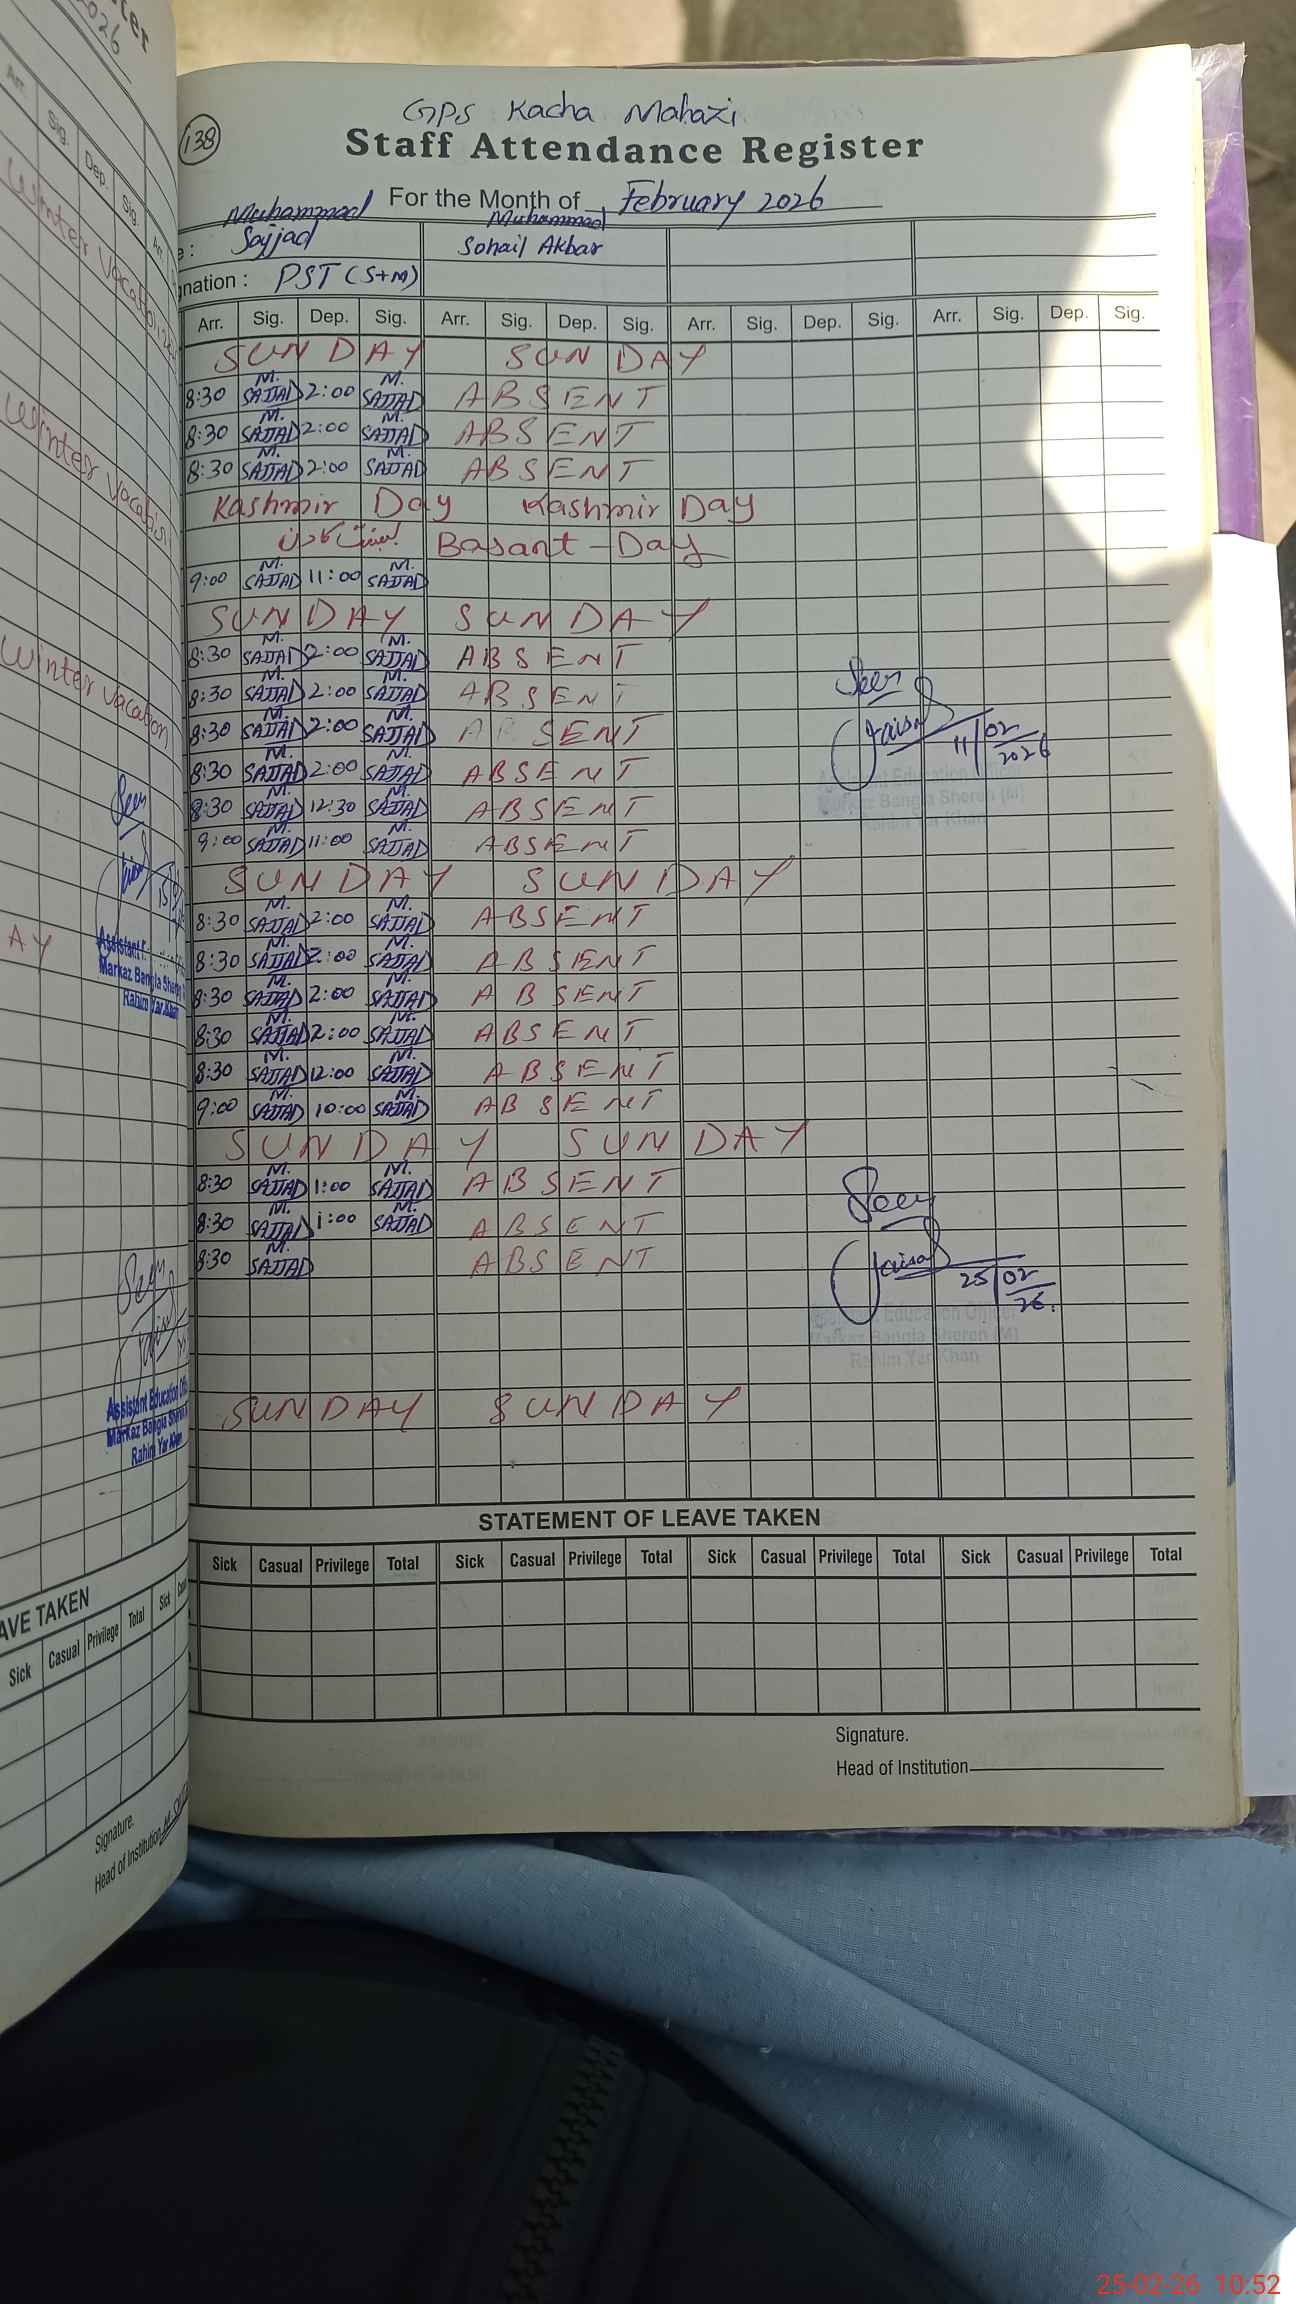 GPS Kacha Mahazi
138
Staff Attendance Register
For the Month of February 2026
Muhammad Sajjad
Muhammad Sohail Akbar
gnation : PST (S+M)
Arr. Sig. Dep. Sig. Arr. Sig. Dep. Sig. Arr. Sig. Dep. Sig. Arr. Sig. Dep. Sig.
SUNDAY SUNDAY
8:30 M. SAJJAD 2:00 M. SAJJAD ABSENT
8:30 M. SAJJAD 2:00 M. SAJJAD ABSENT
8:30 M. SAJJAD 2:00 M. SAJJAD ABSENT
Kashmir Day Kashmir Day
بسنت کا دن Basant - Day
9:00 M. SAJJAD 11:00 M. SAJJAD
SUNDAY SUNDAY
8:30 M. SAJJAD 2:00 M. SAJJAD ABSENT
8:30 M. SAJJAD 2:00 M. SAJJAD ABSENT
8:30 M. SAJJAD 2:00 M. SAJJAD ABSENT
8:30 M. SAJJAD 2:00 M. SAJJAD ABSENT
8:30 M. SAJJAD 12:30 M. SAJJAD ABSENT
9:00 M. SAJJAD 11:00 M. SAJJAD ABSENT
SUNDAY SUNDAY
8:30 M. SAJJAD 2:00 M. SAJJAD ABSENT
8:30 M. SAJJAD 2:00 M. SAJJAD ABSENT
8:30 M. SAJJAD 2:00 M. SAJJAD ABSENT
8:30 M. SAJJAD 2:00 M. SAJJAD ABSENT
8:30 M. SAJJAD 12:00 M. SAJJAD ABSENT
9:00 M. SAJJAD 10:00 M. SAJJAD ABSENT
SUNDAY SUNDAY
8:30 M. SAJJAD 1:00 M. SAJJAD ABSENT
8:30 M. SAJJAD 1:00 M. SAJJAD ABSENT
8:30 M. SAJJAD ABSENT
SUNDAY SUNDAY
Seen
11/02/2026
Assistant Education Officer
Markaz Bangla Sheren (M)
Rahim Yar Khan
Seen
25/02/26.
Assistant Education Officer
Markaz Bangla Sheren (M)
Rahim Yar Khan
STATEMENT OF LEAVE TAKEN
Sick Casual Privilege Total Sick Casual Privilege Total Sick Casual Privilege Total Sick Casual Privilege Total
Signature.
Head of Institution
2026
Arr. Sig. Dep. Sig. Arr.
Winter Vacation
Winter Vacation
Winter Vacation
Seen
AY
Markaz Bangla Sheren
Rahim Yar Khan
Seen
Assistant Education Offi
Markaz Bangla Sheren
Rahim Yar Khan
AVE TAKEN
Sick Casual Privilege Total Sick
Signature.
Head of Institution
25-02-26 10:52